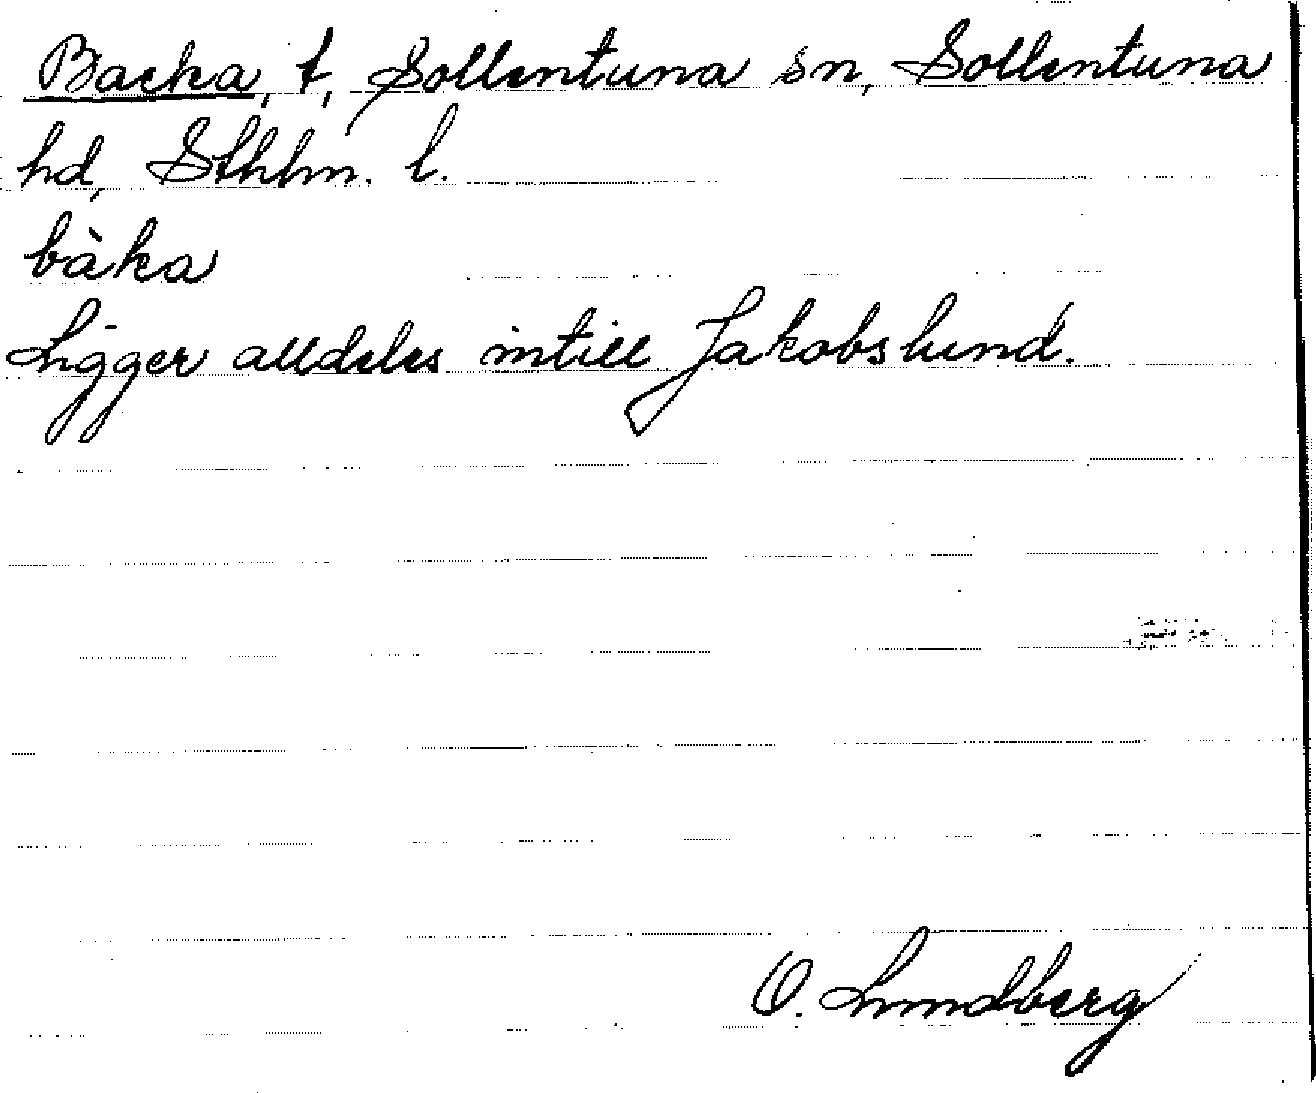 Backa, t, Sollentuna sn, Sollentuna
hd, Sthlm. l.
bàka
Ligger alldeles intill Jakobslund.
O. Lundberg